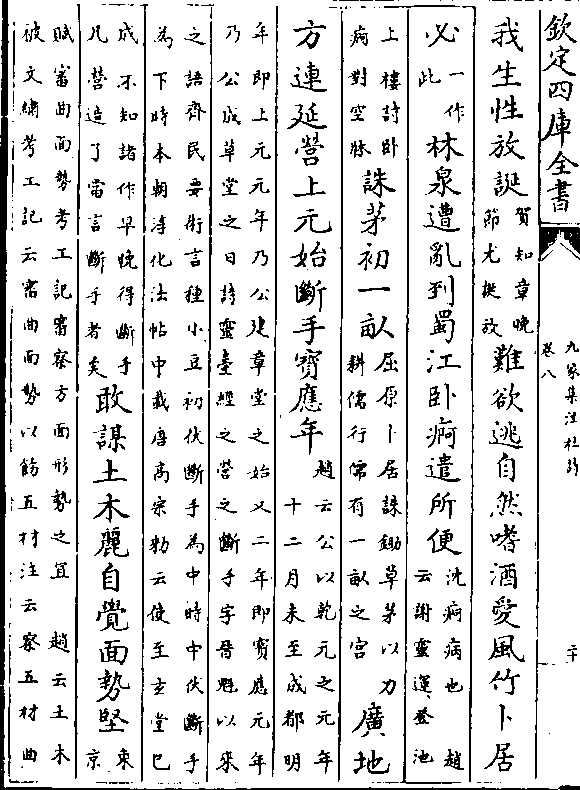 欽定四庫全書
九家集注杜詩
卷八
二十
我生性放誕賀知章晚
節尤縱放難欲逃自然嗜酒愛風竹卜居
必一作
此林泉遭亂到蜀江卧痾遣所便沈痾病也　趙
云謝靈運登池
上樓詩卧
痾對空牀誅茅初一畝屈原卜居誅鋤草茅以力
耕儒行儒有一畝之宮廣地
方連延營上元始斷手寶應年趙云公以乾元之元年
十二月末至成都明
年即上元元年乃公建草堂之始又二年即寶應元年
乃公成草堂之日詩靈臺經之營之斷手字晉魁以來
之語齊民要術言種小豆初伏斷手為中時中伏斷手
為下時本朝淳化法帖中載唐高宗勅云使至玄堂已
成不知諸作早晚得斷手
凡營造了當言斷手者矣敢謀土木麗自覺面勢堅東
京
賦審曲面勢考工記審察方面形勢之宜　趙云土木
被文繡考工記云審曲面勢以飭五材注云察五材曲